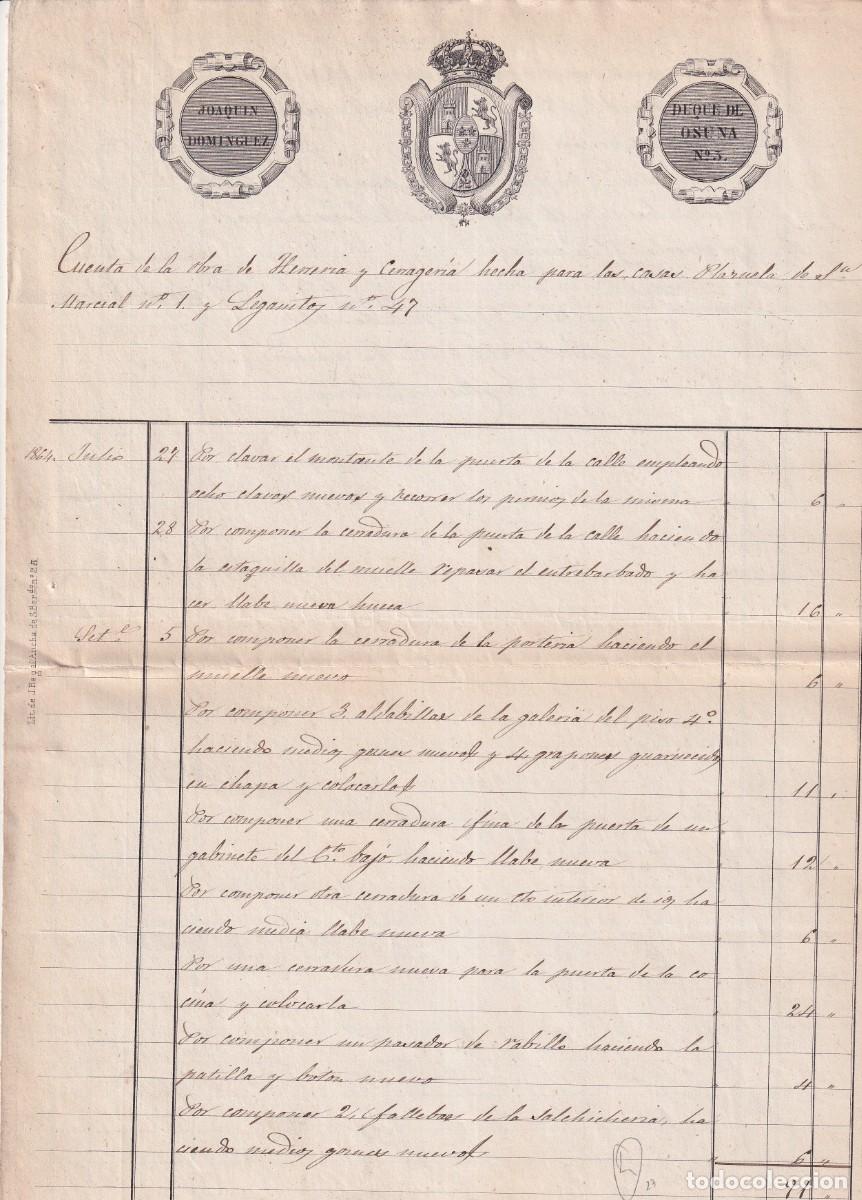 JOAQUIN
DOMINGUEZ
DUQUE DE
OSUNA
Nº 5.
Cuenta de la obra de Herreria y Cerragería hecha para las casas Plazuela de Sn
Marcial nº 1. y Leganitos nº 47
1864. Julio 27 Por clavar el montante de la puerta de la calle empleando
ocho clavos nuevos y recorrer los pernios de la misma " 6 "
28 Por componer la cerradura de la puerta de la calle haciendo
la estaquilla del muelle repasar el entrebarbado y ha
cer llabe nueva hueca " 16 "
Set.e 5 Por componer la cerradura de la porteria haciendo el
muelle nuevo " 6 "
Por componer 3 aldabillas de la galeria del piso 4º
haciendo medios gonces nuevos y 4 grapones guarnecidos
en chapa y colocarlos " 11 "
Por componer una cerradura fina de la puerta de un
gabinete del Cto bajo haciendo llabe nueva " 12 "
Por componer otra cerradura de un cto interior de id ha
ciendo media llabe nueva " 6 "
Por una cerradura nueva para la puerta de la co
cina y colocarla " 24 "
Por componer un pasador de rabillo haciendo la
patilla y boton nuevo " 4 "
Por componer 2 fallebas de la salchicheria, ha
ciendo medios gonces nuevos " 6 "
29
Lit. de J. Reynal Ancha de S. Bardo nº 28
todocoleccion